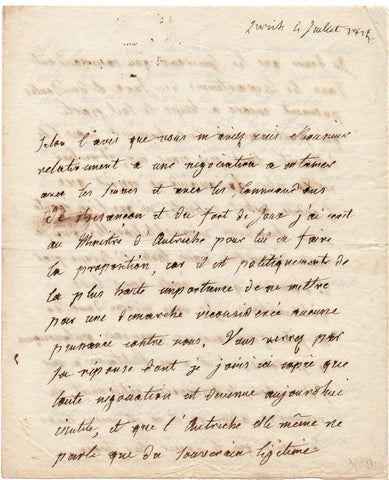 Zurich 4 Juillet 1815.
Selon l'avis que vous m'avez
relativement a une négociation a entamer
avec les et avec les Commandans
de Besançon et du fort de Joux j'ai écrit
au Ministre d'Autriche pour lui en faire
la proposition, car il est politiquement de
la plus haute importance de ne mettre
par une démarche inconsidérée aucune
puissance contre nous. Vous verrez par
sa reponse dont je joins ici copie que
toute négociation est devenue aujourdhui
inutile, et que l'Autriche elle même ne
parle que du souverain légitime